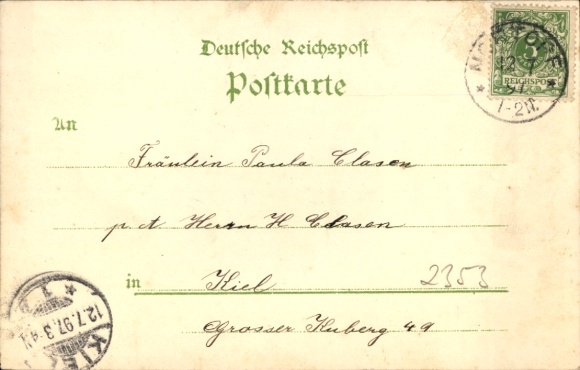 Deutsche Reichspost
Postkarte
5
REICHSPOST
12 7
97
1-2N.
An
Fräulein Paula Clasen
p. A. Herrn H Clasen
in Kiel
2353
Grosser Kuberg 49
12.7.97.3-4N
KIEL